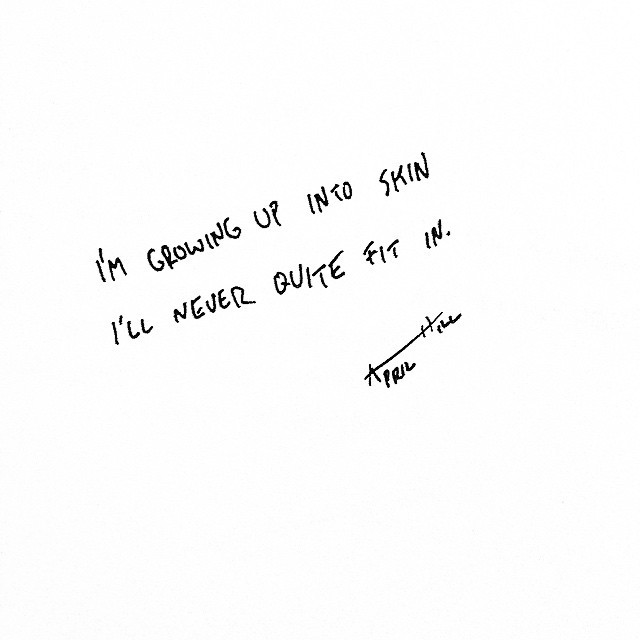 I'M GROWING UP INTO SKIN
I'LL NEVER QUITE FIT IN.
APRIL HILL